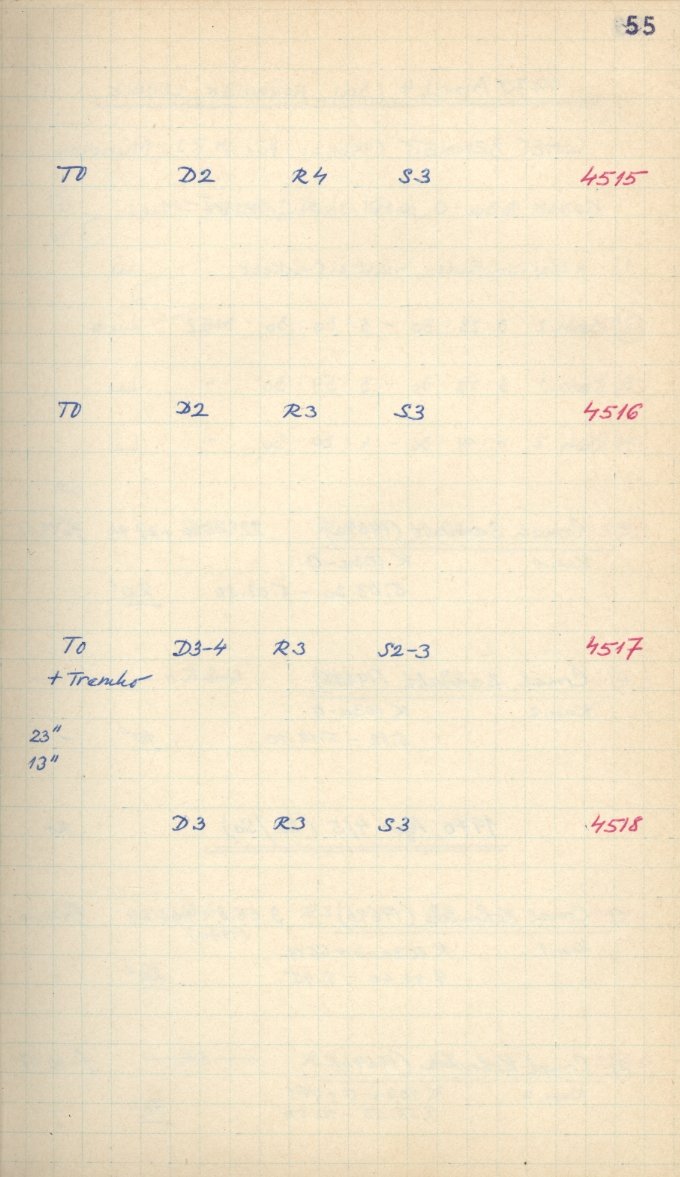 55
TO D2 R4 S3 4515
TO D2 R3 S3 4516
TO D3-4 R3 S2-3 4517
23"
13"
D3 R3 S3 4518